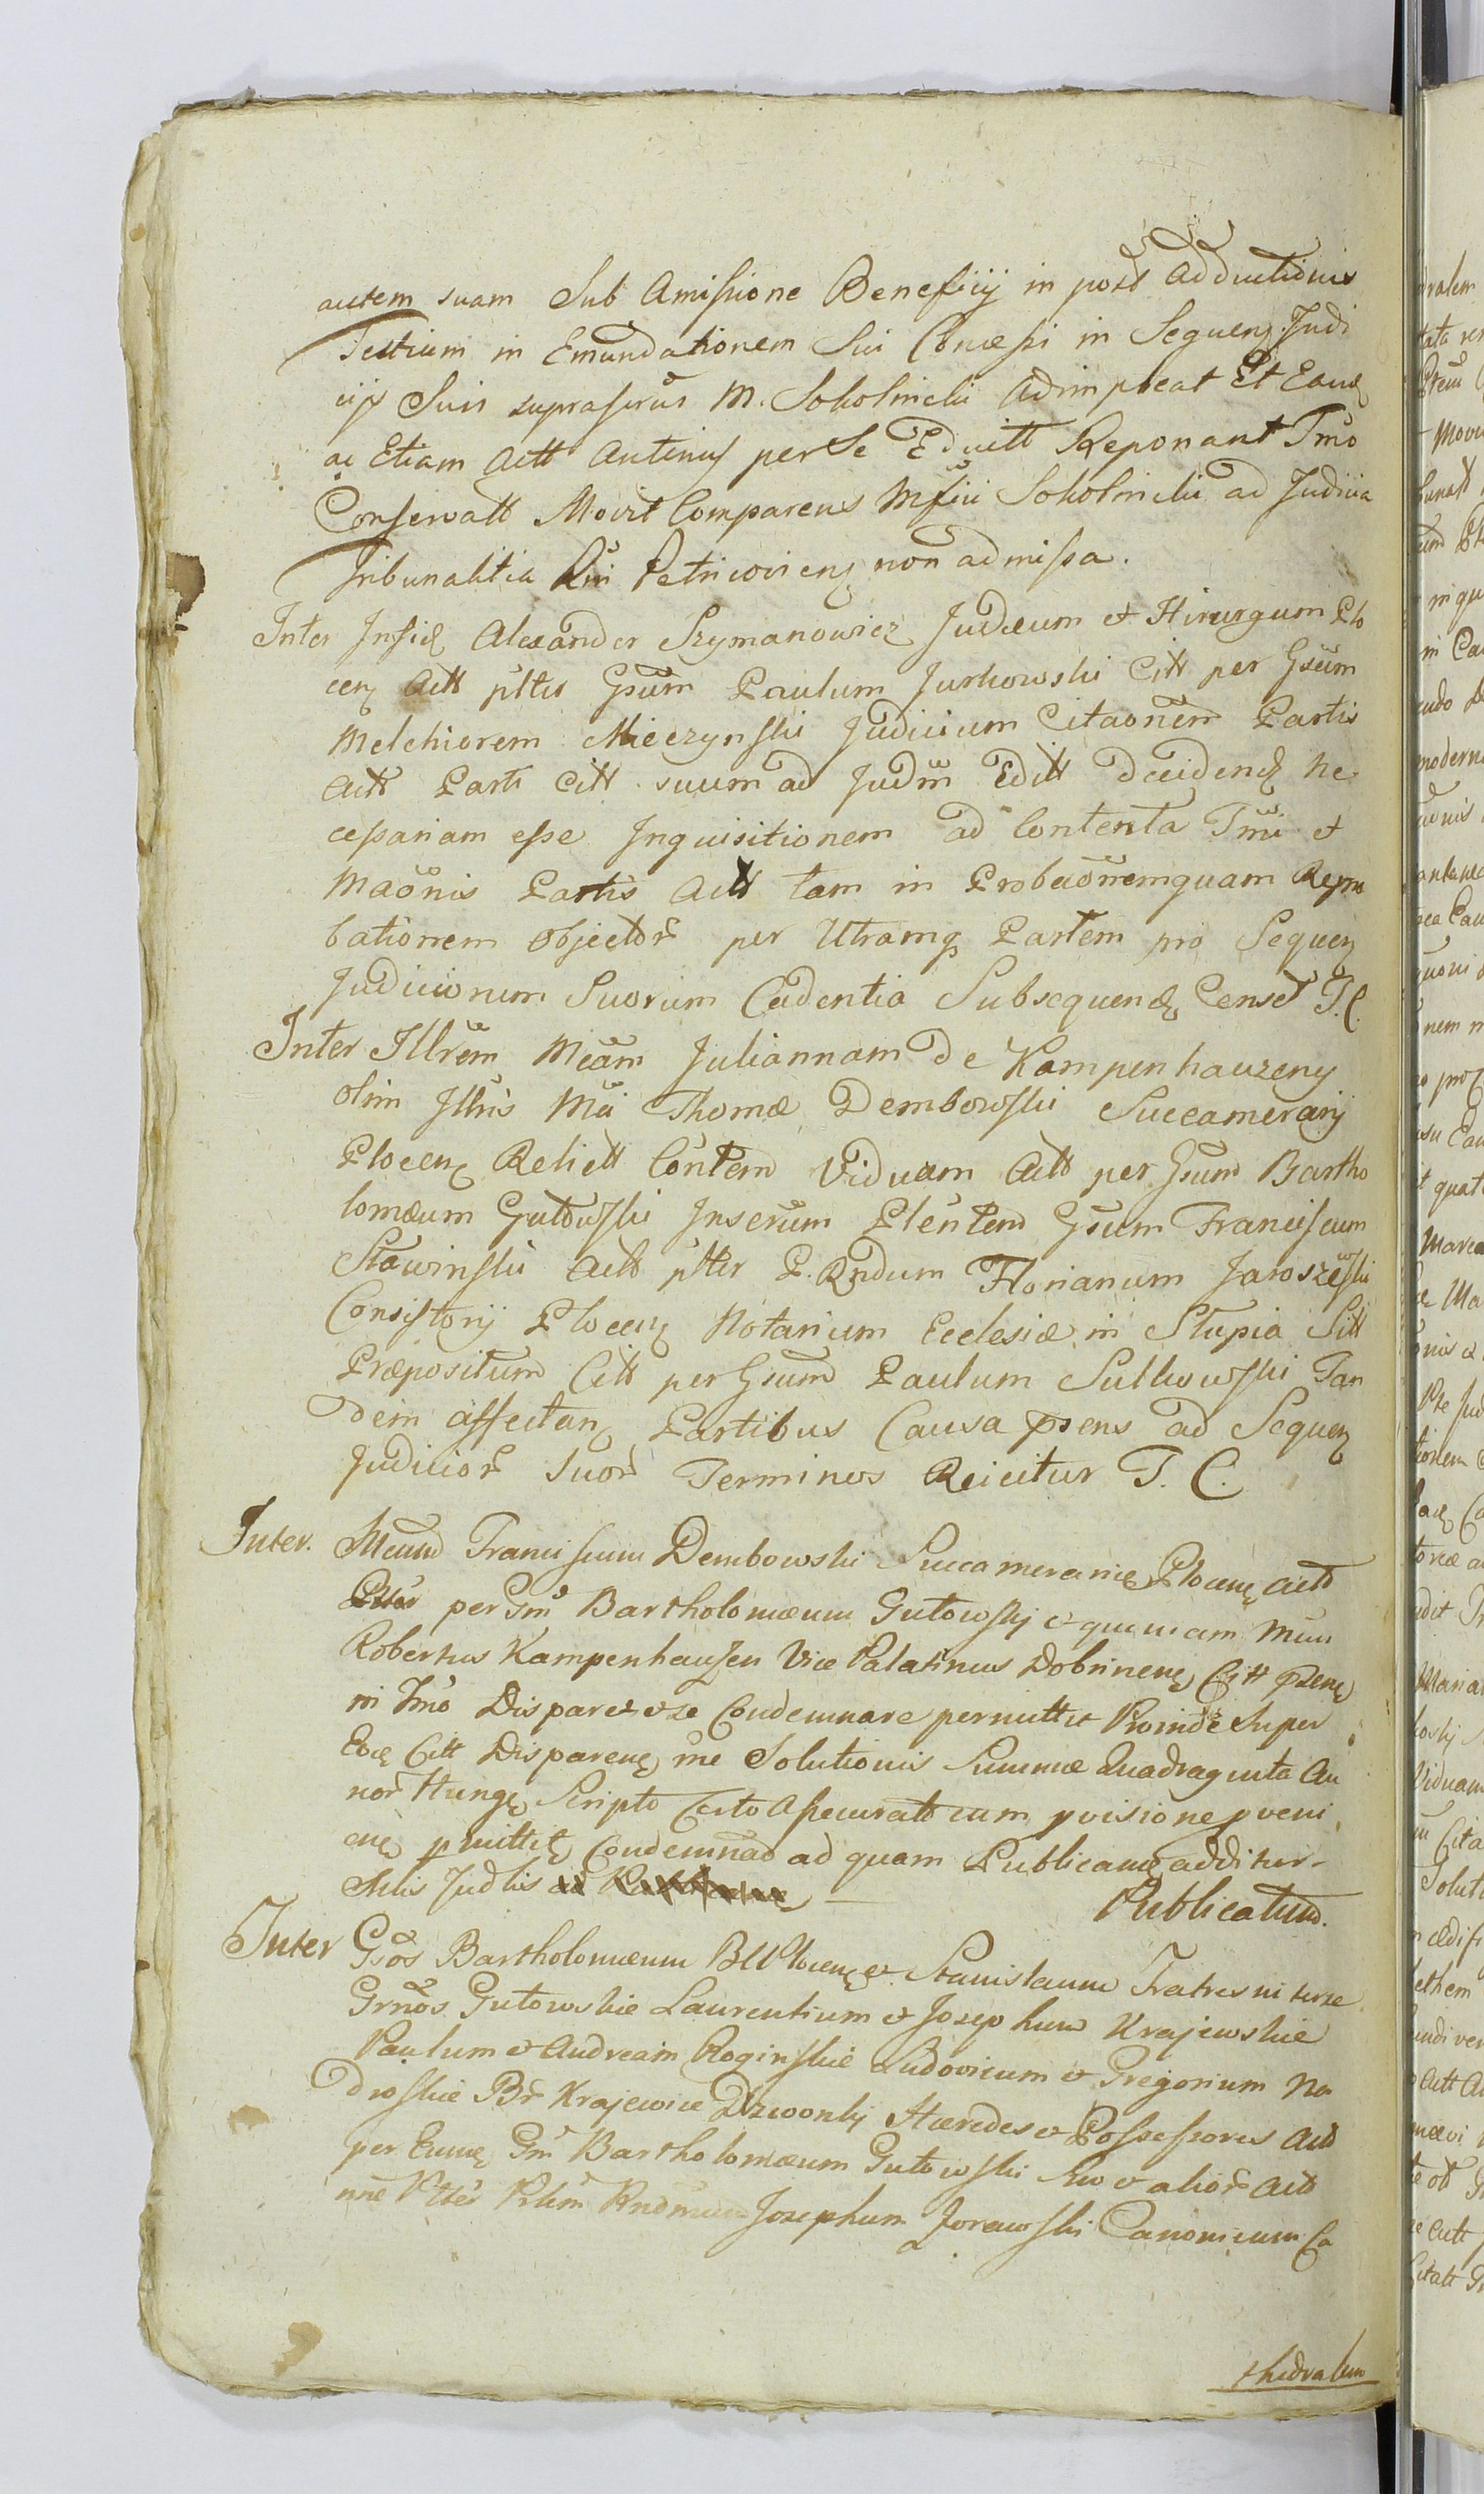 autem suam Sub Amissione Beneficij in post adductionis
Testium in Emundationem Sui Concessi in Sequenz Judi
cijs Suis suprascrūs M. Sokolnicki Adimpleat Et Eand
ac Etiam Actt Autenius per Se Eduitt Reponant Tmo
Conservatt Movit Comparens Mfici Sokolnicki ad Judicia
Tribunalitia Rni Petricovienz non admissa.
Inter Infid Alexander Szymanowicz Judæum et Hirurgum Plo
cenz Actt pltis Gsum Paulum Jurkowski Citt per Gsum
Melchiorem Mieczynski Judicium Citaonem Partis
Actt Parti Citt suum ad Judm Editt Decidend Ne
cessariam esse Inquisitionem ad Contenta Tmi et
Maonis Partis Actt tam in Probaonemquam Repro
bationem objector per Utramq Partem pro Sequenz
Judiciorum Suorum Cadentia Subsequend Censet T. C.
Inter Illrem Mcam Juliannam De Kampenhauzeny
olim Illris Mci Thomæ Dembowski Succamerarij
Plocenz Relictt Contem Viduam Actt per Gsum Bartho
lomæum Gutowski Inserum Plentem Gsum Franciscum
Stawinski Actt plter P. Rndum Florianum Jaroszewski
Consistorij Plocenz Notarium Ecclesiæ in Slupia Sitt
Præpositum Citt per Gsum Paulum Sulkowski Tan
dem affectan Partibus Causa psens ad Sequenz
Judicior Suor Terminos Reicitur T. C.
Inter. Mcum Franciscum Dembowski Succamerarium Plocenz Actt
per Gm Bartholomæum Gutowskj et quoniam Mcus
Robertus Kampenhauzen Vice Palatinus Dobrinenz Citt psenz
in Tmo Disparet et se Condemnare permittit Proinde super
Eod Citt Disparenz in re Solutionis Summæ Quadraginta Au
reor Hung Scripto Certo Assecuratt cum pvisione pveni
enz pmittit Condemnao ad quam Publicand additur
Mtis Judlis
Publicatum.
Inter Gsos Bartholomæum BU Plocenz et Stanislaum Fratres inter se
Grnos Gutowskie Laurentium et Josephum Krajewskie
Paulum et Andream Roginskie Ludovicum et Gregorium Na
droskie Br Krajewice Dzwonky Hæredes et Possessores Actt
per Eund Gm Bartholomæum Gutowski suo et alior Actt
nne Plter Plrm Rndmum Josephum Jorawski Canonicum Ca
thedralem